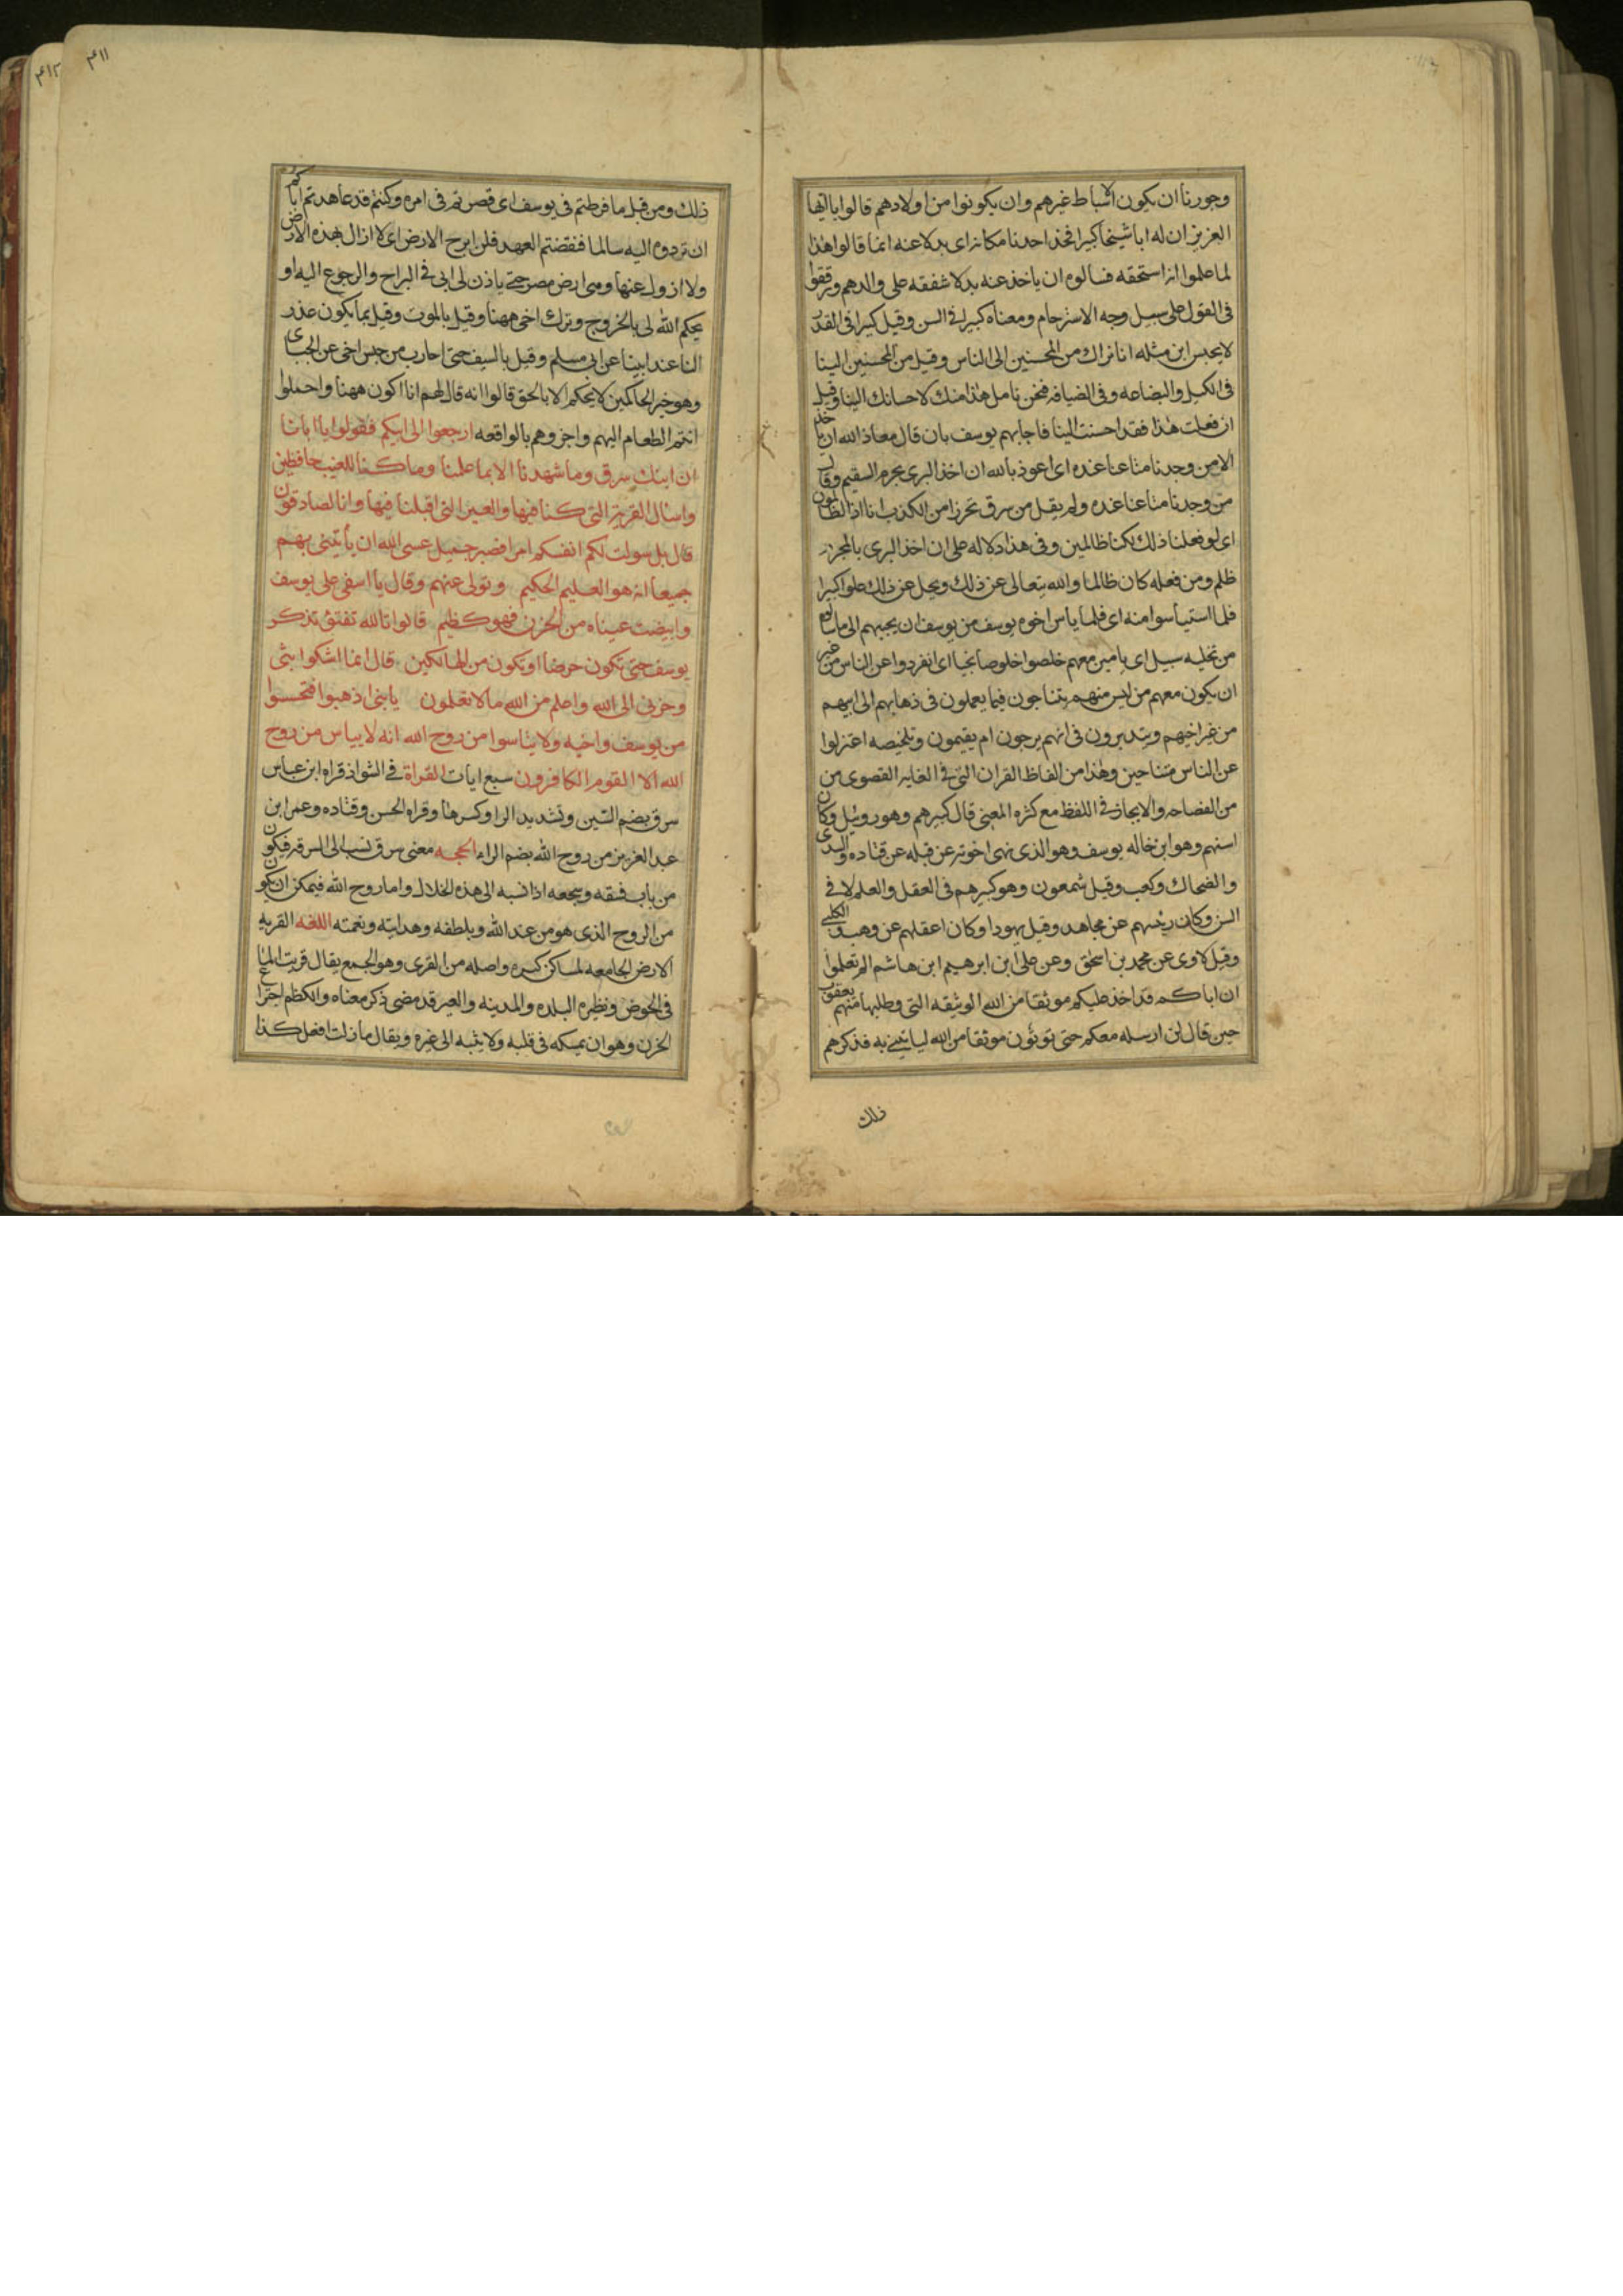 وجوزنا ان يكون الاسباط غيرهم وان يكونوا من اولادهم قالوا يا ايها
العزيز ان له ابا شيخا كبيرا فخذ احدنا مكانه اى بدلا عنه انما قالوا هذا
لما علموا انه استحقه فسالوه ان ياخذ عنه بدلا شفقه على والدهم ورققوا
فى القول على سبيل وجه الاسترحام ومعناه كبيرا فى السن وقيل كبيرا فى القدر
لا يحبس ابن مثله انا نراك من المحسنين الى الناس وقيل من المحسنين الينا
فى الكيل والبضاعه وفى الضيافه فنحن نامل هذا منك لاحسانك الينا وقيل
ان فعلت هذا فقد احسنت الينا فاجابهم يوسف بان قال معاذ الله ان ناخذ
الا من وجدنا متاعنا عنده اى اعوذ بالله ان اخذ البرى بجرم السقيم وقال
من وجدنا متاعنا عنده ولم يقل من سرق تحرزا من الكذب انا اذا لظالمون
اى لو فعلنا ذلك لكنا ظالمين وفى هذا دلاله على ان اخذ البرى بالمجرم
ظلم ومن فعله كان ظالما والله يتعالى عن ذلك ويجل عن ذلك علوا كبيرا
فلما استياسوا منه اى فلما ياس اخوه يوسف من يوسف ان يجيبهم الى ما سالوه
من تخليه سبيل اى يامين معهم خلصوا خلوصا نجيا اى انفردوا عن الناس من غير
ان يكون معهم من ليس منهم يتناجون فيما يعملون فى ذهابهم الى ابيهم
من غير اخيهم ويتدبرون فى انهم يرجون ام يقيمون وتلخيصه اعتزلوا
عن الناس متناجين وهذا من الفاظ القران التى فى الغايه القصوى من
من الفصاحه والايجاز فى اللفظ مع كثره المعنى قال كبيرهم وهو روبيل وكان
اسنهم وهو ابن خاله يوسف وهو الذى نهى اخوته عن قتله عن قتاده والسدى
والضحاك وكعب وقيل شمعون وهو كبيرهم فى العقل والعلم لا فى
السن وكان رئيسهم عن مجاهد وقيل يهودا وكان اعقلهم عن وهب والكلبى
وقيل لاوى عن محمد بن اسحق وعن على ابن ابرهيم ابن هاشم الم تعلموا
ان اباكم قد اخذ عليكم موثقا من الله الوثيقه التى وطلبها منهم يعقوب
حين قال لن ارسله معكم حتى توتون موثقا من الله لياتينى به فذكرهم
ذلك
٤١١
٤١٢
ذلك ومن قبل ما فرطتم فى يوسف اى قصرتم فى امره وكنتم قد عاهدتم اباكم
ان تردوه اليه سالما فنقضتم العهد فلن ابرح الارض اى لا ازال بهذه الارض
ولا ازول عنها وهى ارض مصر حتى ياذن لى ابى فى البراح والرجوع اليه او
يحكم الله لى بالخروج وترك اخى ههنا وقيل بالموت وقيل بما يكون عذر
النا عند ابينا عن ابى مسلم وقيل بالسيف حتى احارب من حبس اخى عن الجبائى
وهو خير الحاكمين لا يحكم الا بالحق قالوا انه قال لهم انا اكون ههنا واحملوا
انتم الطعام اليهم واخبروهم بالواقعه ارجعوا الى ابيكم فقولوا يا ابانا
ان ابنك سرق وما شهدنا الا بما علمنا وما كنا للغيب حافظين
واسال القرية التى كنا فيها والعير التى اقبلنا فيها وانا لصادقون
قال بل سولت لكم انفسكم امرا فصبر جميل عسى الله ان ياتينى بهم
جميعا انه هو العليم الحكيم وتولى عنهم وقال يا اسفى على يوسف
وابيضت عيناه من الحزن فهو كظيم قالوا تالله تفتؤ تذكر
يوسف حتى تكون حرضا او تكون من الهالكين قال انما اشكوا بثى
وحزنى الى الله واعلم من الله ما لا تعلمون يا بنى اذهبوا فتحسسوا
من يوسف واخيه ولا يئاسوا من روح الله انه لا يياس من روح
الله الا القوم الكافرون سبع ايات القراة فى الشواذ قراه ابن عباس
سرق بضم السين وتشديد الرا وكسرها وقراه الحسن وقتاده وعمر ابن
عبد العزيز من روح الله بضم الراء الحجه معنى سرق نسب الى السرقه فيكون
من باب فسقه وشجعه اذا نسبه الى هذه الخلال واما روح الله فيمكن ان يكون
من الروح الذى هو من عند الله وبلطفه وهدايته ونعمته اللغه القريه
الارض الجامعه لمساكن كثيره واصله من القرى وهو الجمع يقال قريت الما
فى الحوض ونظيره البلده والمدينه والعير قد مضى ذكر معناه والكظم اجتراع
الحزن وهو ان يمسكه فى قلبه ولا يثبه الى غيره ويقال ما زلت افعل كذا